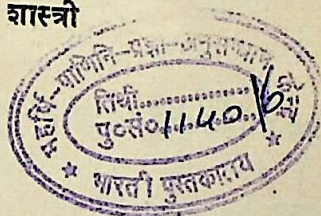 शास्त्री
महर्षि-पाणिनि-प्रज्ञा-अनुसन्धान
तिथी...............
पु०सं०1140
* भारती पुस्तकालय *